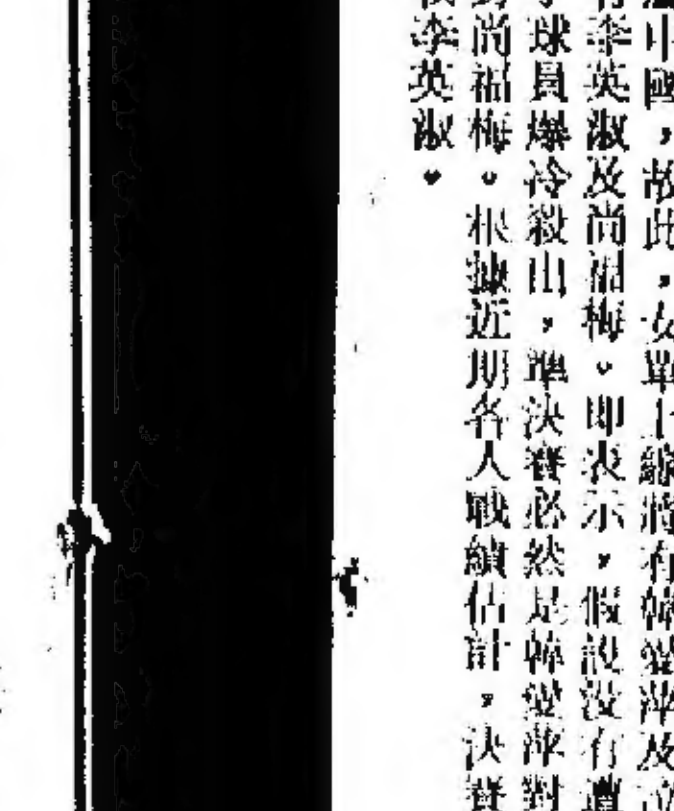 中國，故此，女單上線將有韓愛萍及
李英淑及尚福梅。即表示，假設沒有遭
球員爆冷殺出，準決賽必然是韓愛萍對
尚福梅。根據近期各人戰績估計，決賽
李英淑。